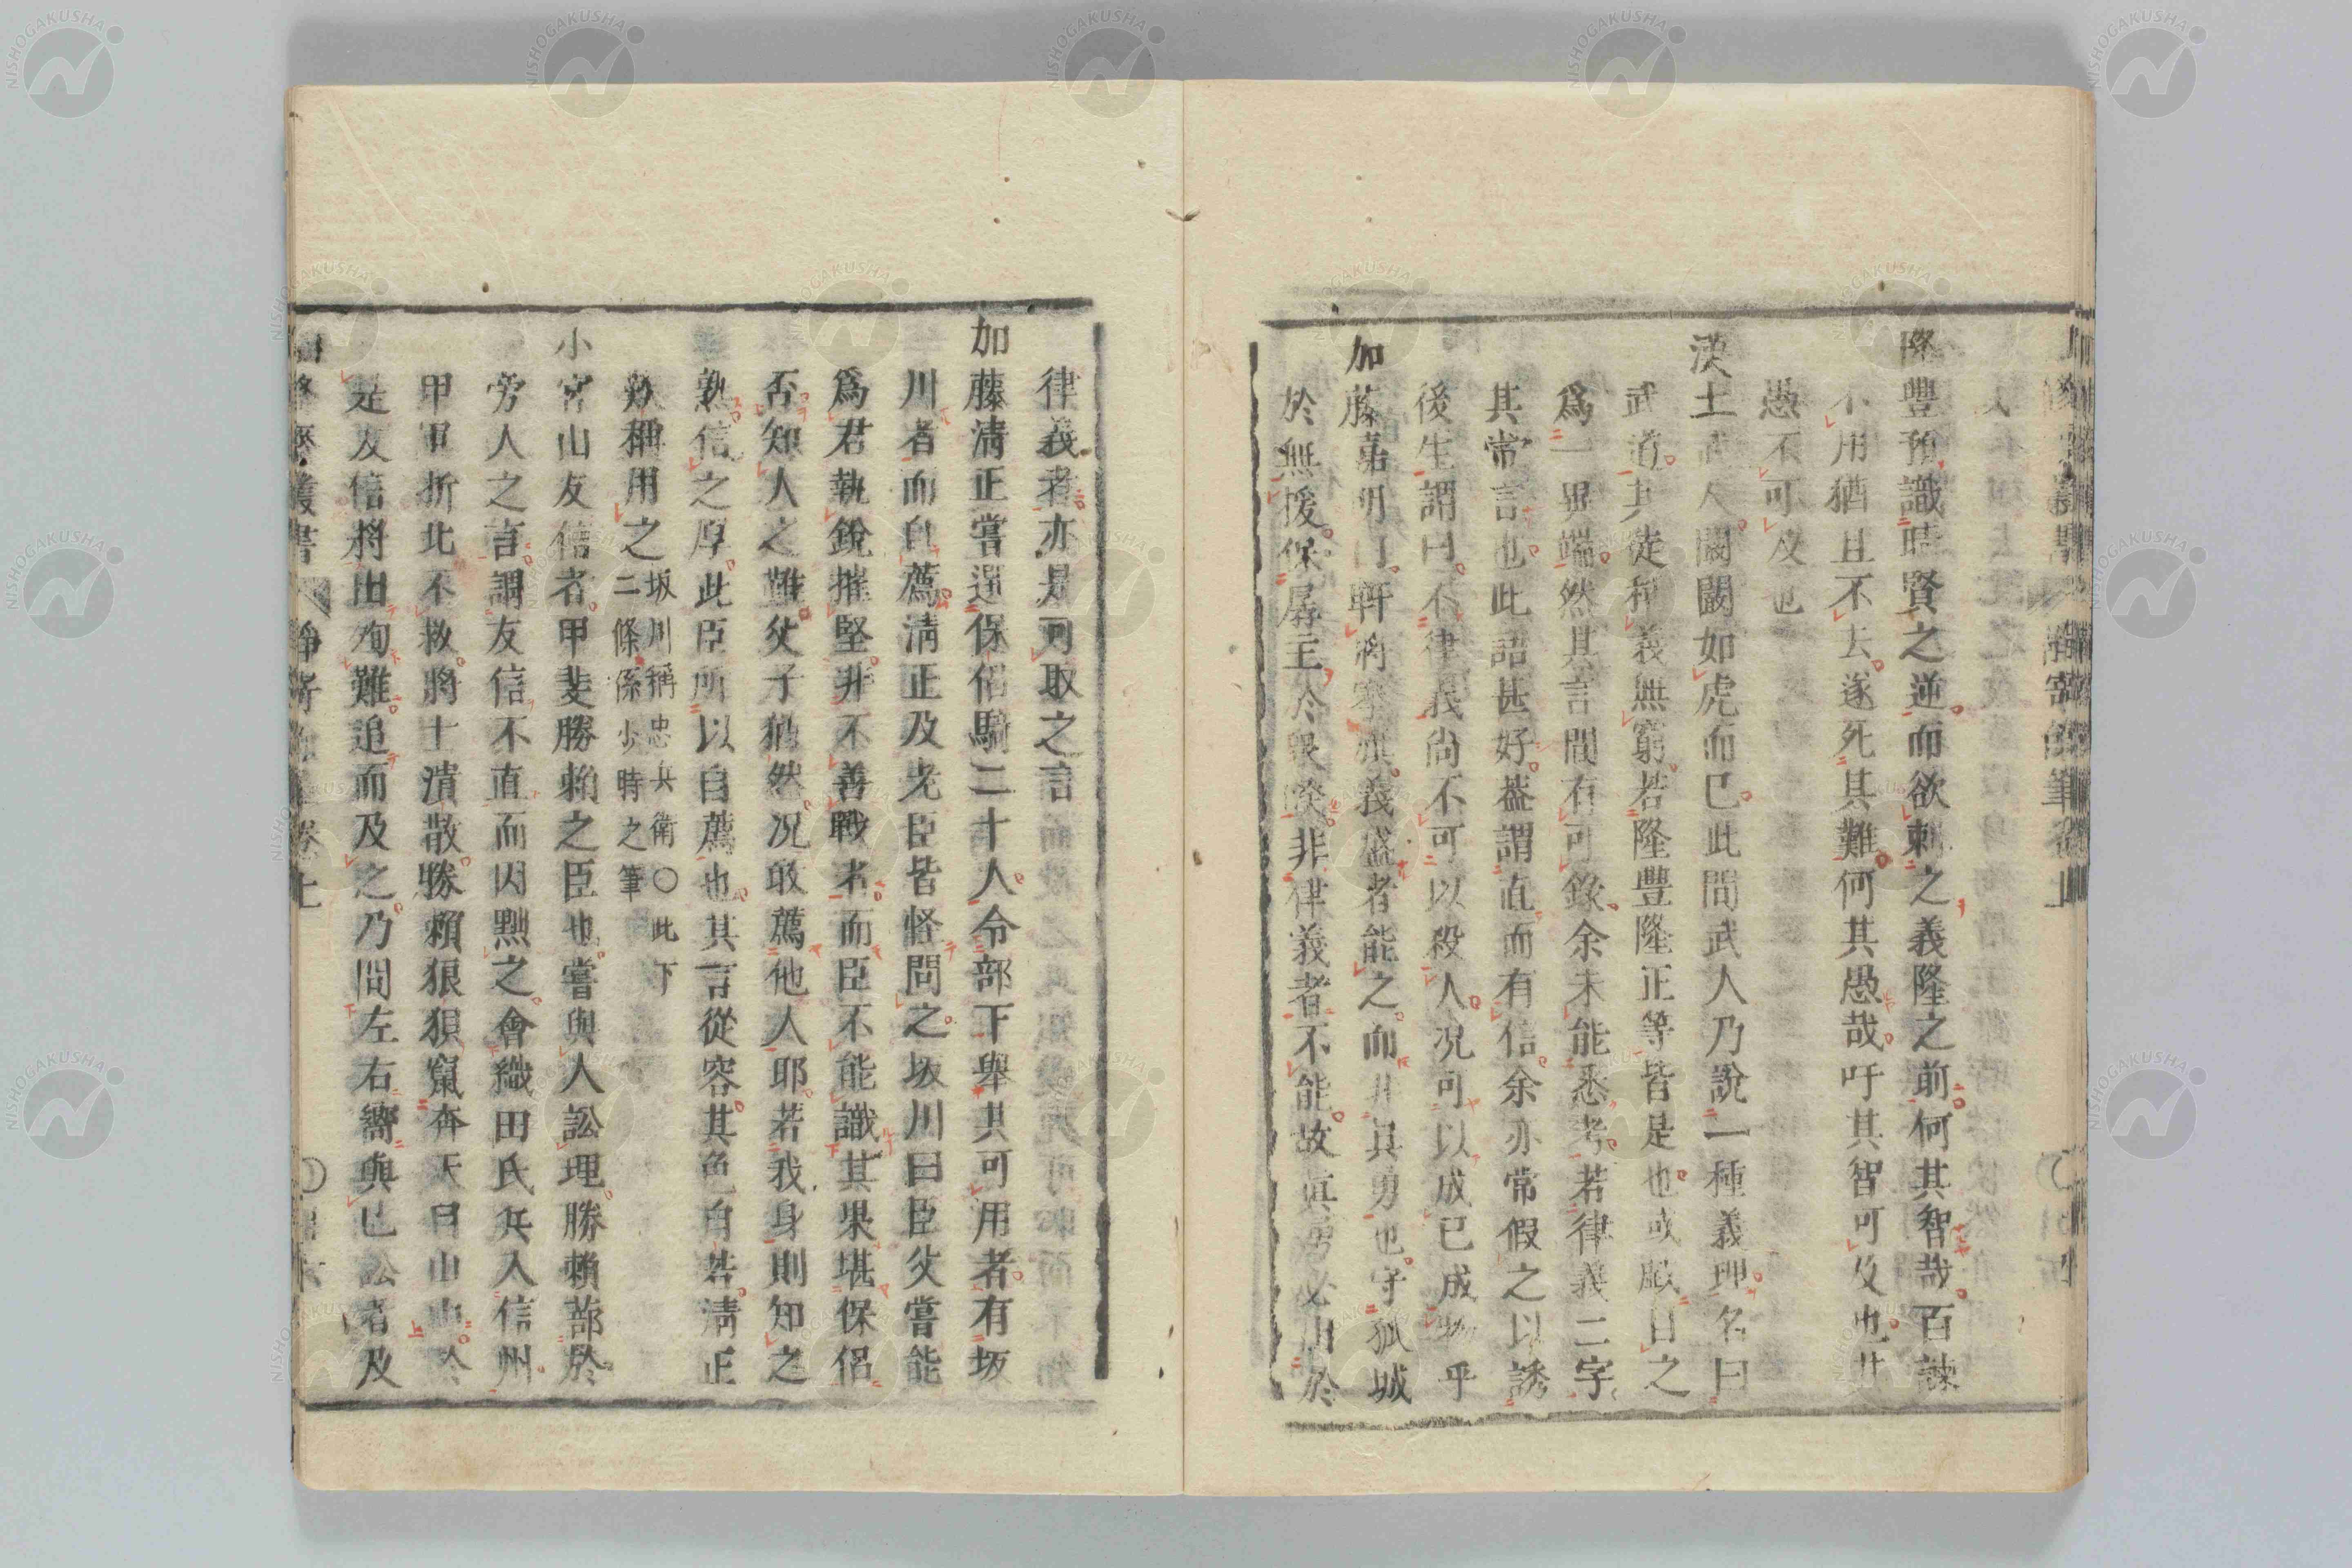 隆豐預識晴賢之逆而欲刺之義隆之前何其智哉百諫
不用猶且不去遂死其難何其愚哉吁其智可及也其
愚不可及也
漢土武人鬭鬭如虎而已此間武人乃說一種義理名曰
武道其徒種義無窮若隆豐隆正等皆是也或厭日之
爲一異端然其言間有可錄余未能悉考若律義二字
其常言也此語甚好蓋謂直而有信余亦常假之以誘
後生謂曰不律義尚不可以殺人况可以成已成物乎
加藤嘉明曰斬將搴旗義盛者能之而非真勇也守孤城
於無援保孱主於衆睽非律義者不能故真勇必出於
律義者亦是可取之言
加藤淸正嘗選保侶騎二十人令部下舉其可用者有坂
川者而自薦淸正及老臣皆怪問之坂川曰臣父嘗能
爲君執銳摧堅非不善戰者而臣不能識其果堪保侶
否知人之難父子猶然况敢薦他人耶若我身則知之
熟信之厚此臣所以自薦也其言從容其色自若淸正
歎稱用之
坂川稱忠兵衛〇此下
二條係少時之筆
小宮山友信者甲斐勝賴之臣也嘗與人訟理勝賴蔀於
旁人之言謂友信不直而囚黜之會織田氏兵入信州
甲軍折北不救將士潰散勝賴狼狽竄奔天目山中於
是友信將出殉難追而及之乃問左右嚮與已訟者及